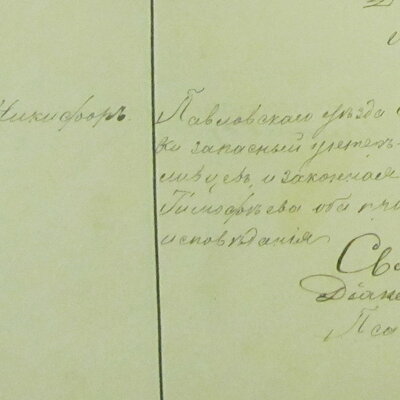 Никифоръ.
Павловскаго уѣзда
ки запасный унтеръ
ливцевъ, и законная
Тимофѣева оба пра
исповѣданія
Свя
Діако
Пса